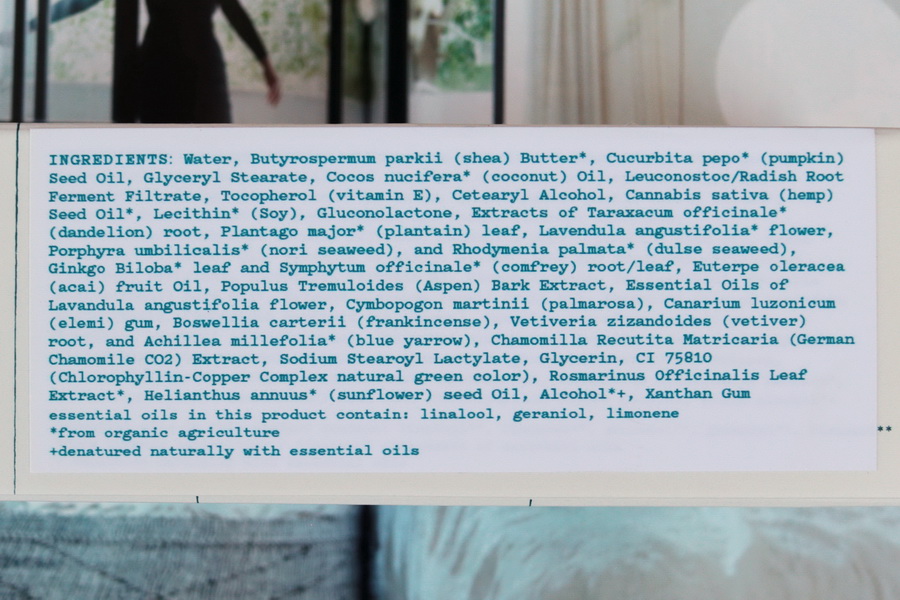 INGREDIENTS: Water, Butyrospermum parkii (shea) Butter*, Cucurbita pepo* (pumpkin)
Seed Oil, Glyceryl Stearate, Cocos nucifera* (coconut) Oil, Leuconostoc/Radish Root
Ferment Filtrate, Tocopherol (vitamin E), Cetearyl Alcohol, Cannabis sativa (hemp)
Seed Oil*, Lecithin* (Soy), Gluconolactone, Extracts of Taraxacum officinale*
(dandelion) root, Plantago major* (plantain) leaf, Lavendula angustifolia* flower,
Porphyra umbilicalis* (nori seaweed), and Rhodymenia palmata* (dulse seaweed),
Ginkgo Biloba* leaf and Symphytum officinale* (comfrey) root/leaf, Euterpe oleracea
(acai) fruit Oil, Populus Tremuloides (Aspen) Bark Extract, Essential Oils of
Lavandula angustifolia flower, Cymbopogon martinii (palmarosa), Canarium luzonicum
(elemi) gum, Boswellia carterii (frankincense), Vetiveria zizandoides (vetiver)
root, and Achillea millefolia* (blue yarrow), Chamomilla Recutita Matricaria (German
Chamomile CO2) Extract, Sodium Stearoyl Lactylate, Glycerin, CI 75810
(Chlorophyllin-Copper Complex natural green color), Rosmarinus Officinalis Leaf
Extract*, Helianthus annuus* (sunflower) seed Oil, Alcohol*+, Xanthan Gum
essential oils in this product contain: linalool, geraniol, limonene
*from organic agriculture
**
+denatured naturally with essential oils